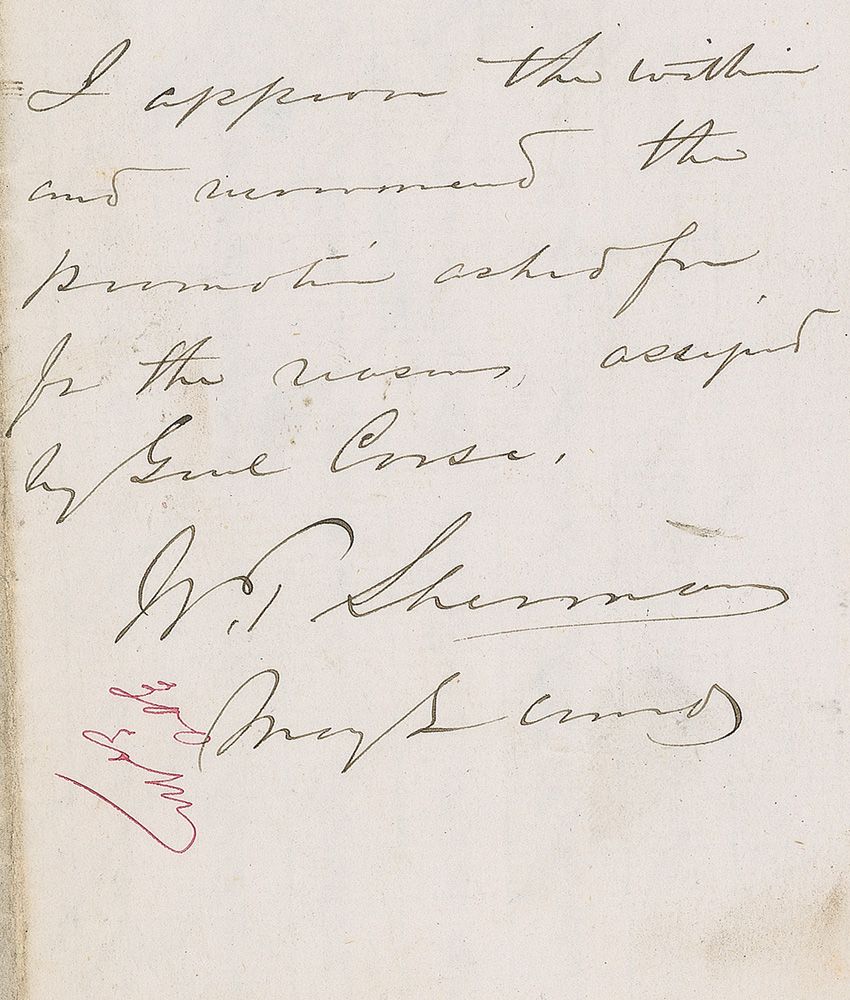 I approve the within
and recommend the
promotion asked for
for the reasons, assigned
by Genl Corse.
W. T. Sherman
Maj Genl comdg